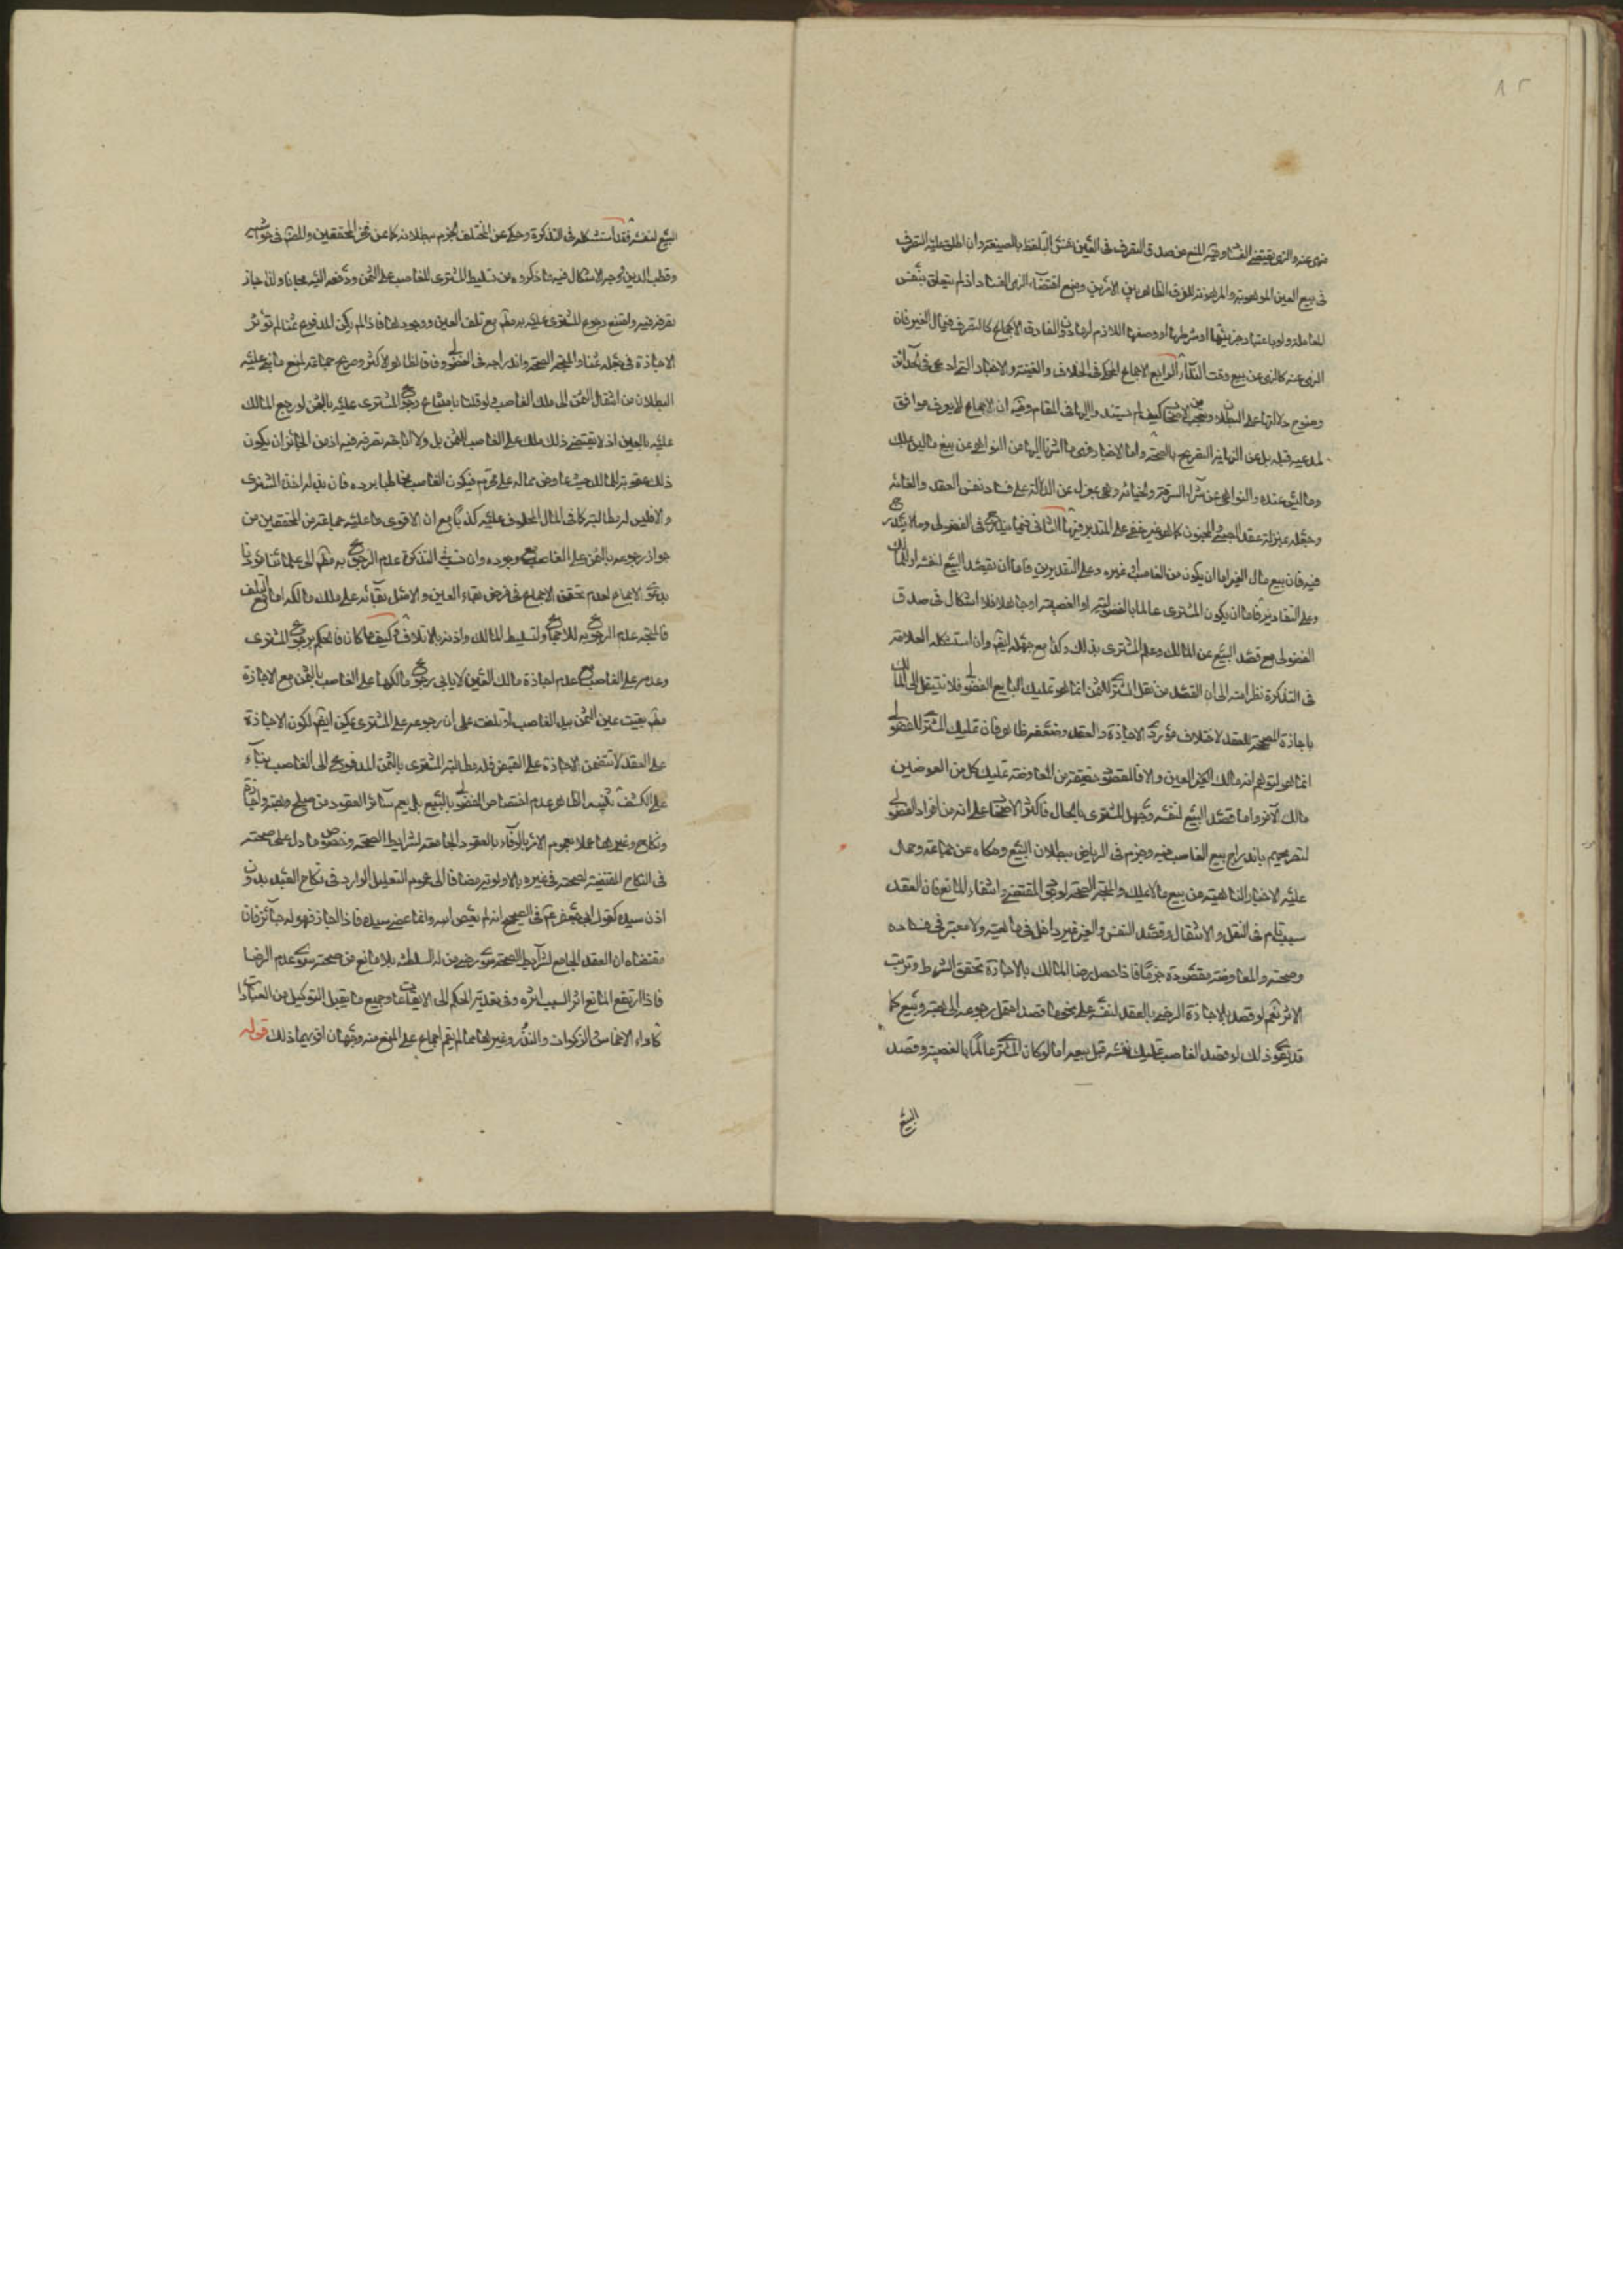 ١٥
منهى عنه والنهى يقتضى الفساد وفيه المنع من صدق التصرف فى العين بمحض التلفظ بالصيغة وان اطلق عليه التصرف
فى بيع العين الموهوبة والمرهونة للفرق الظاهر بين الامرين ومنع اقتضاء النهى الفساد اذ لم يتعلق بنفس
المعاملة ولو باعتبار جزئيتها او شرطها او وصفها اللازم لها دون المفارق الاجماع كالتصرف فى مال الغير فان
النهى عنه كالنهى عن بيع وقت النداء الرابع الاجماع المحكى فى الخلاف والغنية والاخبار التى ادعى فى الحدائق
وضوح دلالتها على البطلان وتعجب من الاصحاب كيف لم يستندوا اليها فى المقام وفيه ان الاجماع لا يعرف موافق
لمدعيه قبله بل عن النهاية التصريح بالصحة واما الاخبار فهى ما اشرنا اليها من النواهى عن بيع ما ليس ملك
وما ليس عنده والنواهى عن شراء السرقة والخيانة وهى بمعزل عن الدلالة على فساد نفس العقد والغائه
وجعله بمنزلة عقد الصبى والمجنون كما هو غير خفى على المتدبر فيها الثانى فيما يندرج فى الفضولى وما لا يندرج
فيه فان بيع مال الغير اما ان يكون من الغاصب او غيره وعلى التقديرين فاما ان يقصد البيع لنفسه او للمالك
وعلى التقادير فاما ان يكون المشترى عالما بالفضولية او الغصبية او جاهلا فلا اشكال فى صدق
الفضولى مع قصد البيع عن المالك وعلم المشترى بذلك وكذا مع جهله ايضا وان استشكله العلامة
فى التذكرة نظرا منه الى ان القصد من نقل المشترى للثمن انما هو تمليك البايع الفضولى فلا ينتقل الى المالك
باجازة المصححة للعقد لاختلاف مورد الاجازة والعقد وضعفه ظاهر فان تمليك المشترى للفضولى
انما هو لتوهم انه مالك العين والا فالمقصود حقيقة من المعاوضة تمليك كل من العوضين
مالك الآخر واما قصد البيع لنفسه وجهل المشترى بالحال فاكثر الاصحاب على انه من افراد الفضولى
لتصريحهم باندراج بيع الغاصب فيه وجزم فى الرياض ببطلان البيع وحكاه عن جماعة وحمل
عليه الاخبار الناهية عن بيع ما لا يملك والمتجه الصحة لوجود المقتضى وانتفاء المانع فان العقد
سبب تام فى النقل والانتقال وقصد النفس والغير غير داخل فى ماهيته ولا معتبر فى فساده
وصحته والمعاوضة مقصودة جزما فاذا حصل رضا المالك بالاجازة تحقق الشرط وترتب
الاثر نعم لو قصد بالاجازة الرضى بالعقد لنفسه على نحو ما قصد احتمل رجوعه الى هبة وبيع كما
قد يقوى ذلك لو قصد الغاصب تمليك نفسه قبل بيعه اما لو كان المشترى عالما بالغصبية وقصد
البيع
البيع لنفسه فقد استشكله فى التذكرة وحكى عن المختلف الجزم ببطلانه كما عن فخر المحققين والمصنف فى حواشيه
وقطب الدين ووجه الاشكال فيه ما ذكروه من تسليط المشترى للغاصب على الثمن ودفعه اليه مجانا ولذا جاز
تصرفه فيه وامتنع رجوع المشترى عليه به مطلقا مع تلف العين ووجودها فاذا لم يكن المدفوع ثمنا لم تؤثر
الاجازة فى جعله ثمنا والمتجه الصحة واندراجه فى الفضولى وفاقا لظاهر الاكثر وصريح جماعة لمنع ما بنى عليه
البطلان من انتقال الثمن الى ملك الغاصب ولو قلنا بامتناع رجوع المشترى عليه بالثمن لو رجع المالك
عليه بالعين اذ لا يقتضى ذلك ملك الغاصب للثمن بل ولا اباحة تصرفه فيه اذ من الجائز ان يكون
ذلك عقوبة للمالك حيث عاوض بماله على محرم فيكون الغاصب مخاطبا برده فان بذله اخذه المشترى
والا فليس له مطالبته كما فى المال المحلوف عليه كذبا مع ان الاقوى ما عليه جماعة من المحققين من
جواز رجوعه بالثمن على الغاصب مع وجوده وان نسب فى التذكرة عدم الرجوع به مطلقا الى علمائنا مؤذنا
بدعوى الاجماع لعدم تحقق الاجماع فى فرض بقاء العين والاصل بقائه على ملك مالكه اما مع التلف
فالمتجه عدم الرجوع به للاجماع ولتسليط المالك واذنه بالاتلاف وكيف ما كان فالحكم برجوع المشترى
وعدمه على الغاصب مع عدم اجازة مالك العين لا ينافى رجوع مالكها على الغاصب بالثمن مع الاجازة
مطلقا بقيت عين الثمن بيد الغاصب او تلفت على ان رجوعه على المشترى ممكن ايضا لكون الاجازة
على العقد لا تتضمن الاجازة على القبض فله مطالبة المشترى بالثمن المدفوع الى الغاصب بناء
على الكشف تنبيه الظاهر عدم اختصاص الفضولى بالبيع بل يعم سائر العقود من صلح وهبة واجارة
ونكاح وغيرها عملا بعموم الامر بالوفاء بالعقود الجامعة لشرايط الصحة وخصوص ما دل على صحته
فى النكاح المقتضية لصحته فى غيره بالاولوية مضافا الى عموم التعليل الوارد فى نكاح العبد بدون
اذن سيده كقول ابى جعفر ع فى الصحيح انه لم يعص الله وانما عصى سيده فاذا اجاز فهو له جائز فان
مقتضاه ان العقد الجامع لشرايط الصحة سوى رضى من له السلطنة بلا مانع من صحته سوى عدم الرضا
فاذا ارتفع المانع اثر السبب اثره وفى تعدية الحكم الى الايقاعات وجميع ما يقبل التوكيل من العبادات
كاداء الاخماس والزكوات والنذر وغيرها مما لم يقم اجماع على المنع منه وجهان اقويهما ذلك قوله